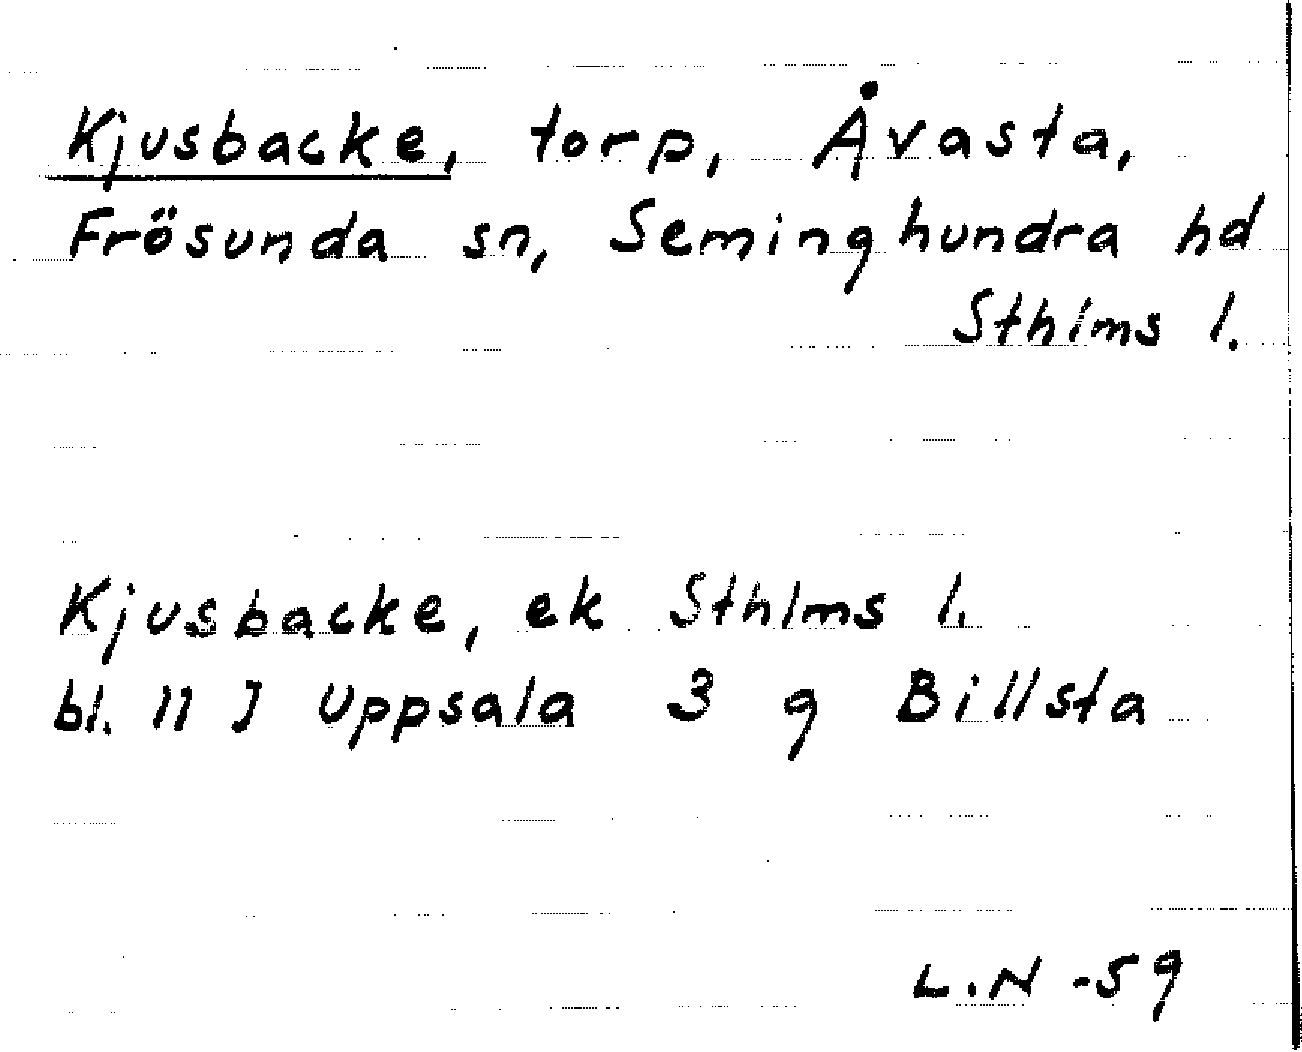 Kjusbacke, torp, Åvasta,
Frösunda sn, Seminghundra hd
Sthlms l.
Kjusbacke, ek Sthlms l.
bl. 11 I Uppsala 3 g Billsta
L.N -59